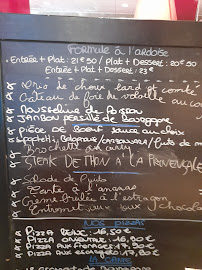 Formule à l'ardoise
Entrée + Plat : 21€50 / Plat + Dessert : 20€50
Entrée + Plat + Dessert : 23€
de choux lard et comté
Gâteau de foie de volaille au
Mousseline de Poisson
Jambon persillé de Bourgogne
Pièce de Boeuf sauce au choix
Spaghetti Bolognaise / Carbonara / fruits de
Brochette
Steak de Thon à la Provençale
Salade de fruits
Tarte à l'ananas
Crème brûlée à l'estragon
Entremet aux 3 chocolats
Nos Pizzas
Pizza Reine : 16,50€
Pizza : 16,90€
Pizza aux fromages : 17,90€
Pizza aux escargots : 17,80€
La Carte